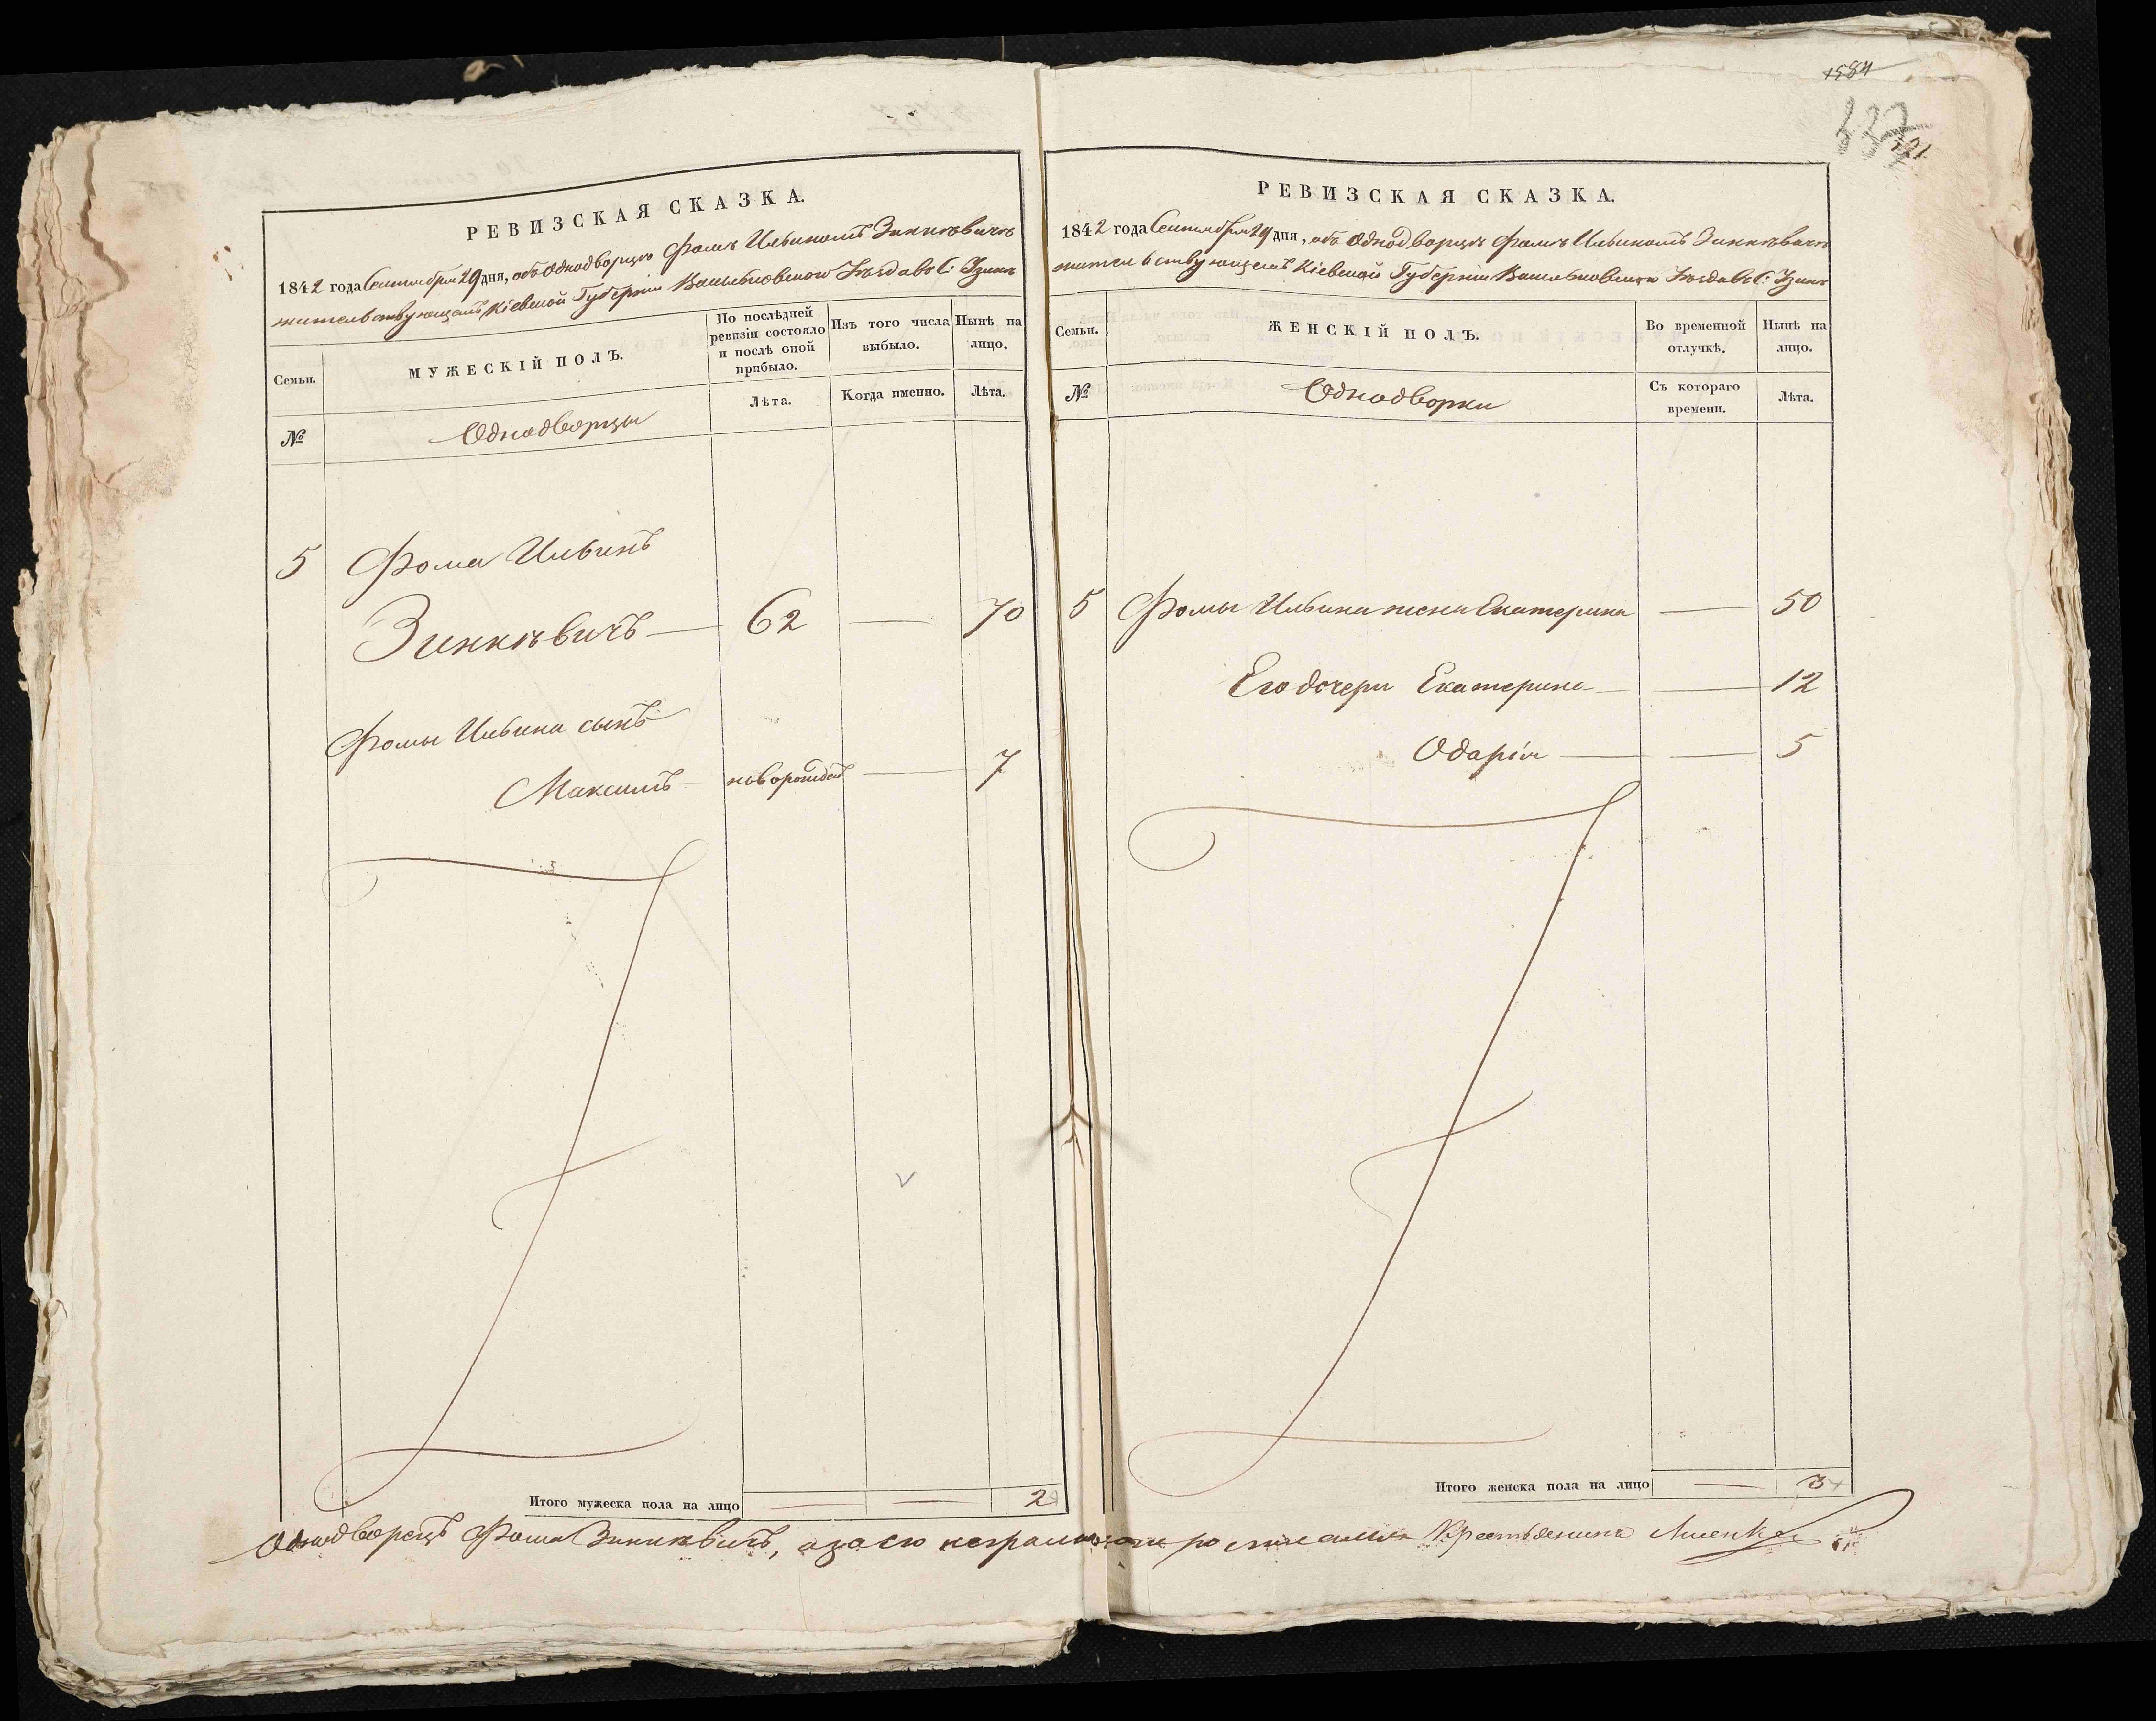 1584
РЕВИЗСКАЯ СКАЗКА.
1842 года Сентября 29 дня, объ Однодворцѣ Фомѣ Ильиномъ Зинкѣвичѣ
жительствующемъ Кіевской Губерніи Васильковскаго Уѣзда въ С: Узинѣ
Семьи.
МУЖЕСКІЙ ПОЛЪ.
По послѣдней ревизіи состояло и послѣ оной прибыло.
Изъ того числа выбыло.
Нынѣ на лицо.
№
Однодворцы
Лѣта.
Когда именно.
Лѣта.
5 Фома Ильинъ
Зинкѣвичъ — 62 — 70
Фомы Ильина сынъ
Максимъ новорожден — 7
Итого мужеска пола на лицо — — 2
РЕВИЗСКАЯ СКАЗКА.
1842 года Сентября 29 дня, объ Однодворцѣ Фомѣ Ильиномъ Зинкѣвичѣ
жительствующемъ Кіевской Губерніи Васильковскаго Уѣзда въ С: Узинѣ
Семьи.
ЖЕНСКІЙ ПОЛЪ.
Во временной отлучкѣ.
Нынѣ на лицо.
№
Однодворки
Съ котораго времени.
Лѣта.
5 Фомы Ильина жена Екатерина — 50
Его дочери Екатерина — — 12
Одарія — — 5
Итого женска пола на лицо — 3
Однодворецъ Фома Зинкѣвичъ, а за его неграмотн росписался